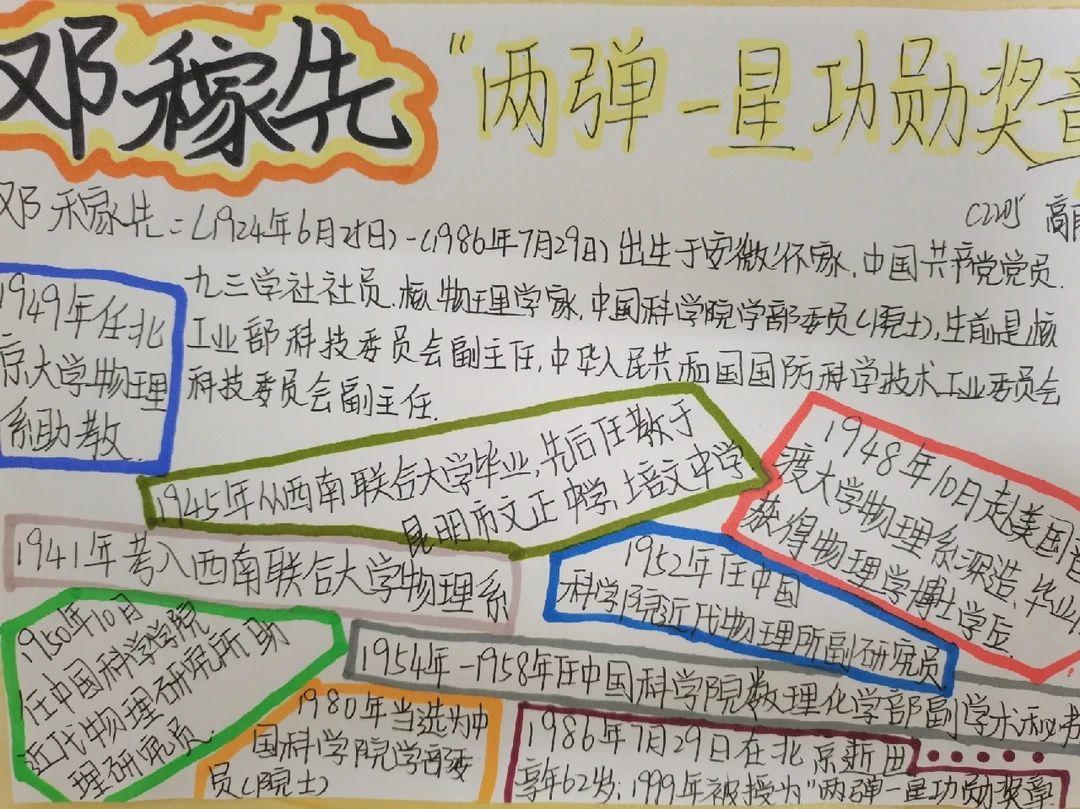 邓稼先
"两弹一星功勋奖章
C2205
邓稼先:(1924年6月25日)-(1986年7月29日)出生于安徽怀家.中国共产党党员.
九三学社社员.核物理学家.中国科学院学部委员(院士),生前是核
工业部科技委员会副主任,中华人民共和国国防科学技术工业委员会
科技委员会副主任.
1949年任北
京大学物理
系助教
1945年从西南联合大学毕业,先后任教于
昆明市文正中学,培文中学
1948年10月赴美国普
渡大学物理系深造、毕业
获得物理学博士学位
1941年考入西南联合大学物理系
1952年任中国
科学院近代物理所副研究员
1950年10日
任中国科学学院
近代物理研究所助
理研究员
1954年-1958年任中国科学院数理化学部副学术秘书
1980年当选为中
国科学院学部委
员(院士)
1986年7月29日在北京逝世
享年62岁;1999年被授为"两弹一星功勋奖章